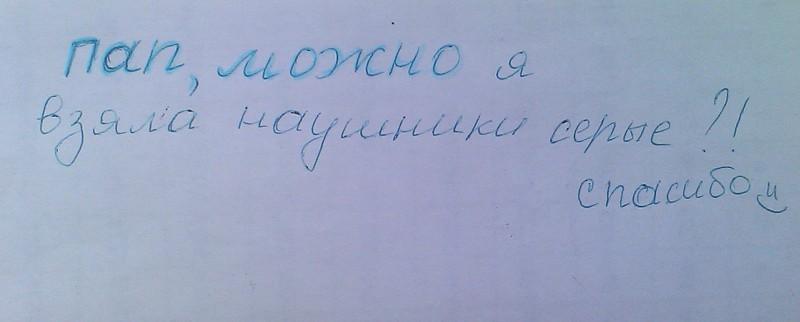 пап, можно я
взяла наушники серые ?!
спасибо